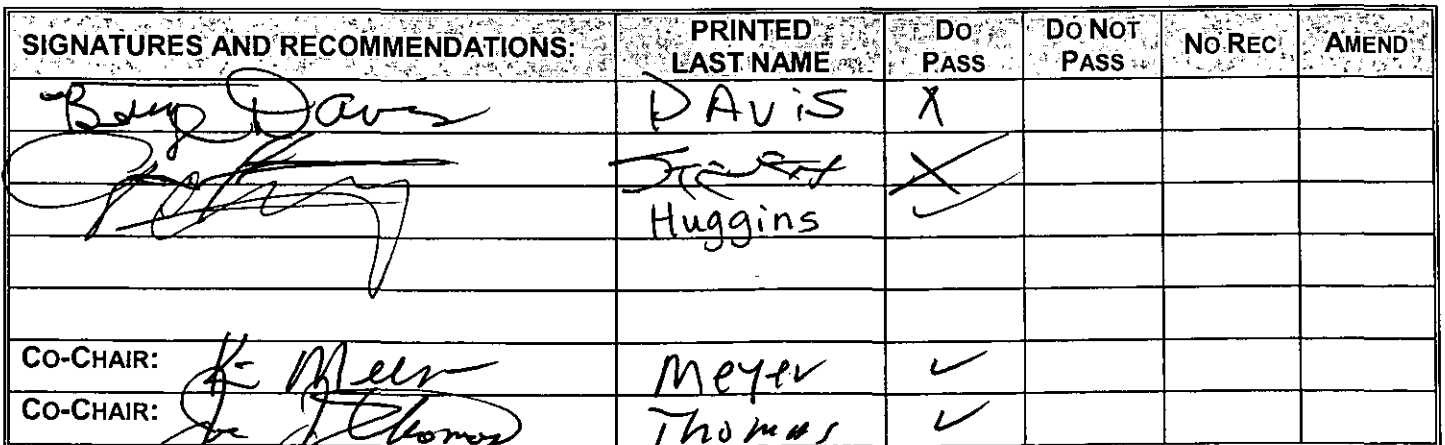 SIGNATURES AND RECOMMENDATIONS: PRINTED LAST NAME DO PASS DO NOT PASS NO REC AMEND
Davis DAViS X
X
Huggins ✓
CO-CHAIR: Meyer ✓
CO-CHAIR: Joe J Thomas Thomas ✓